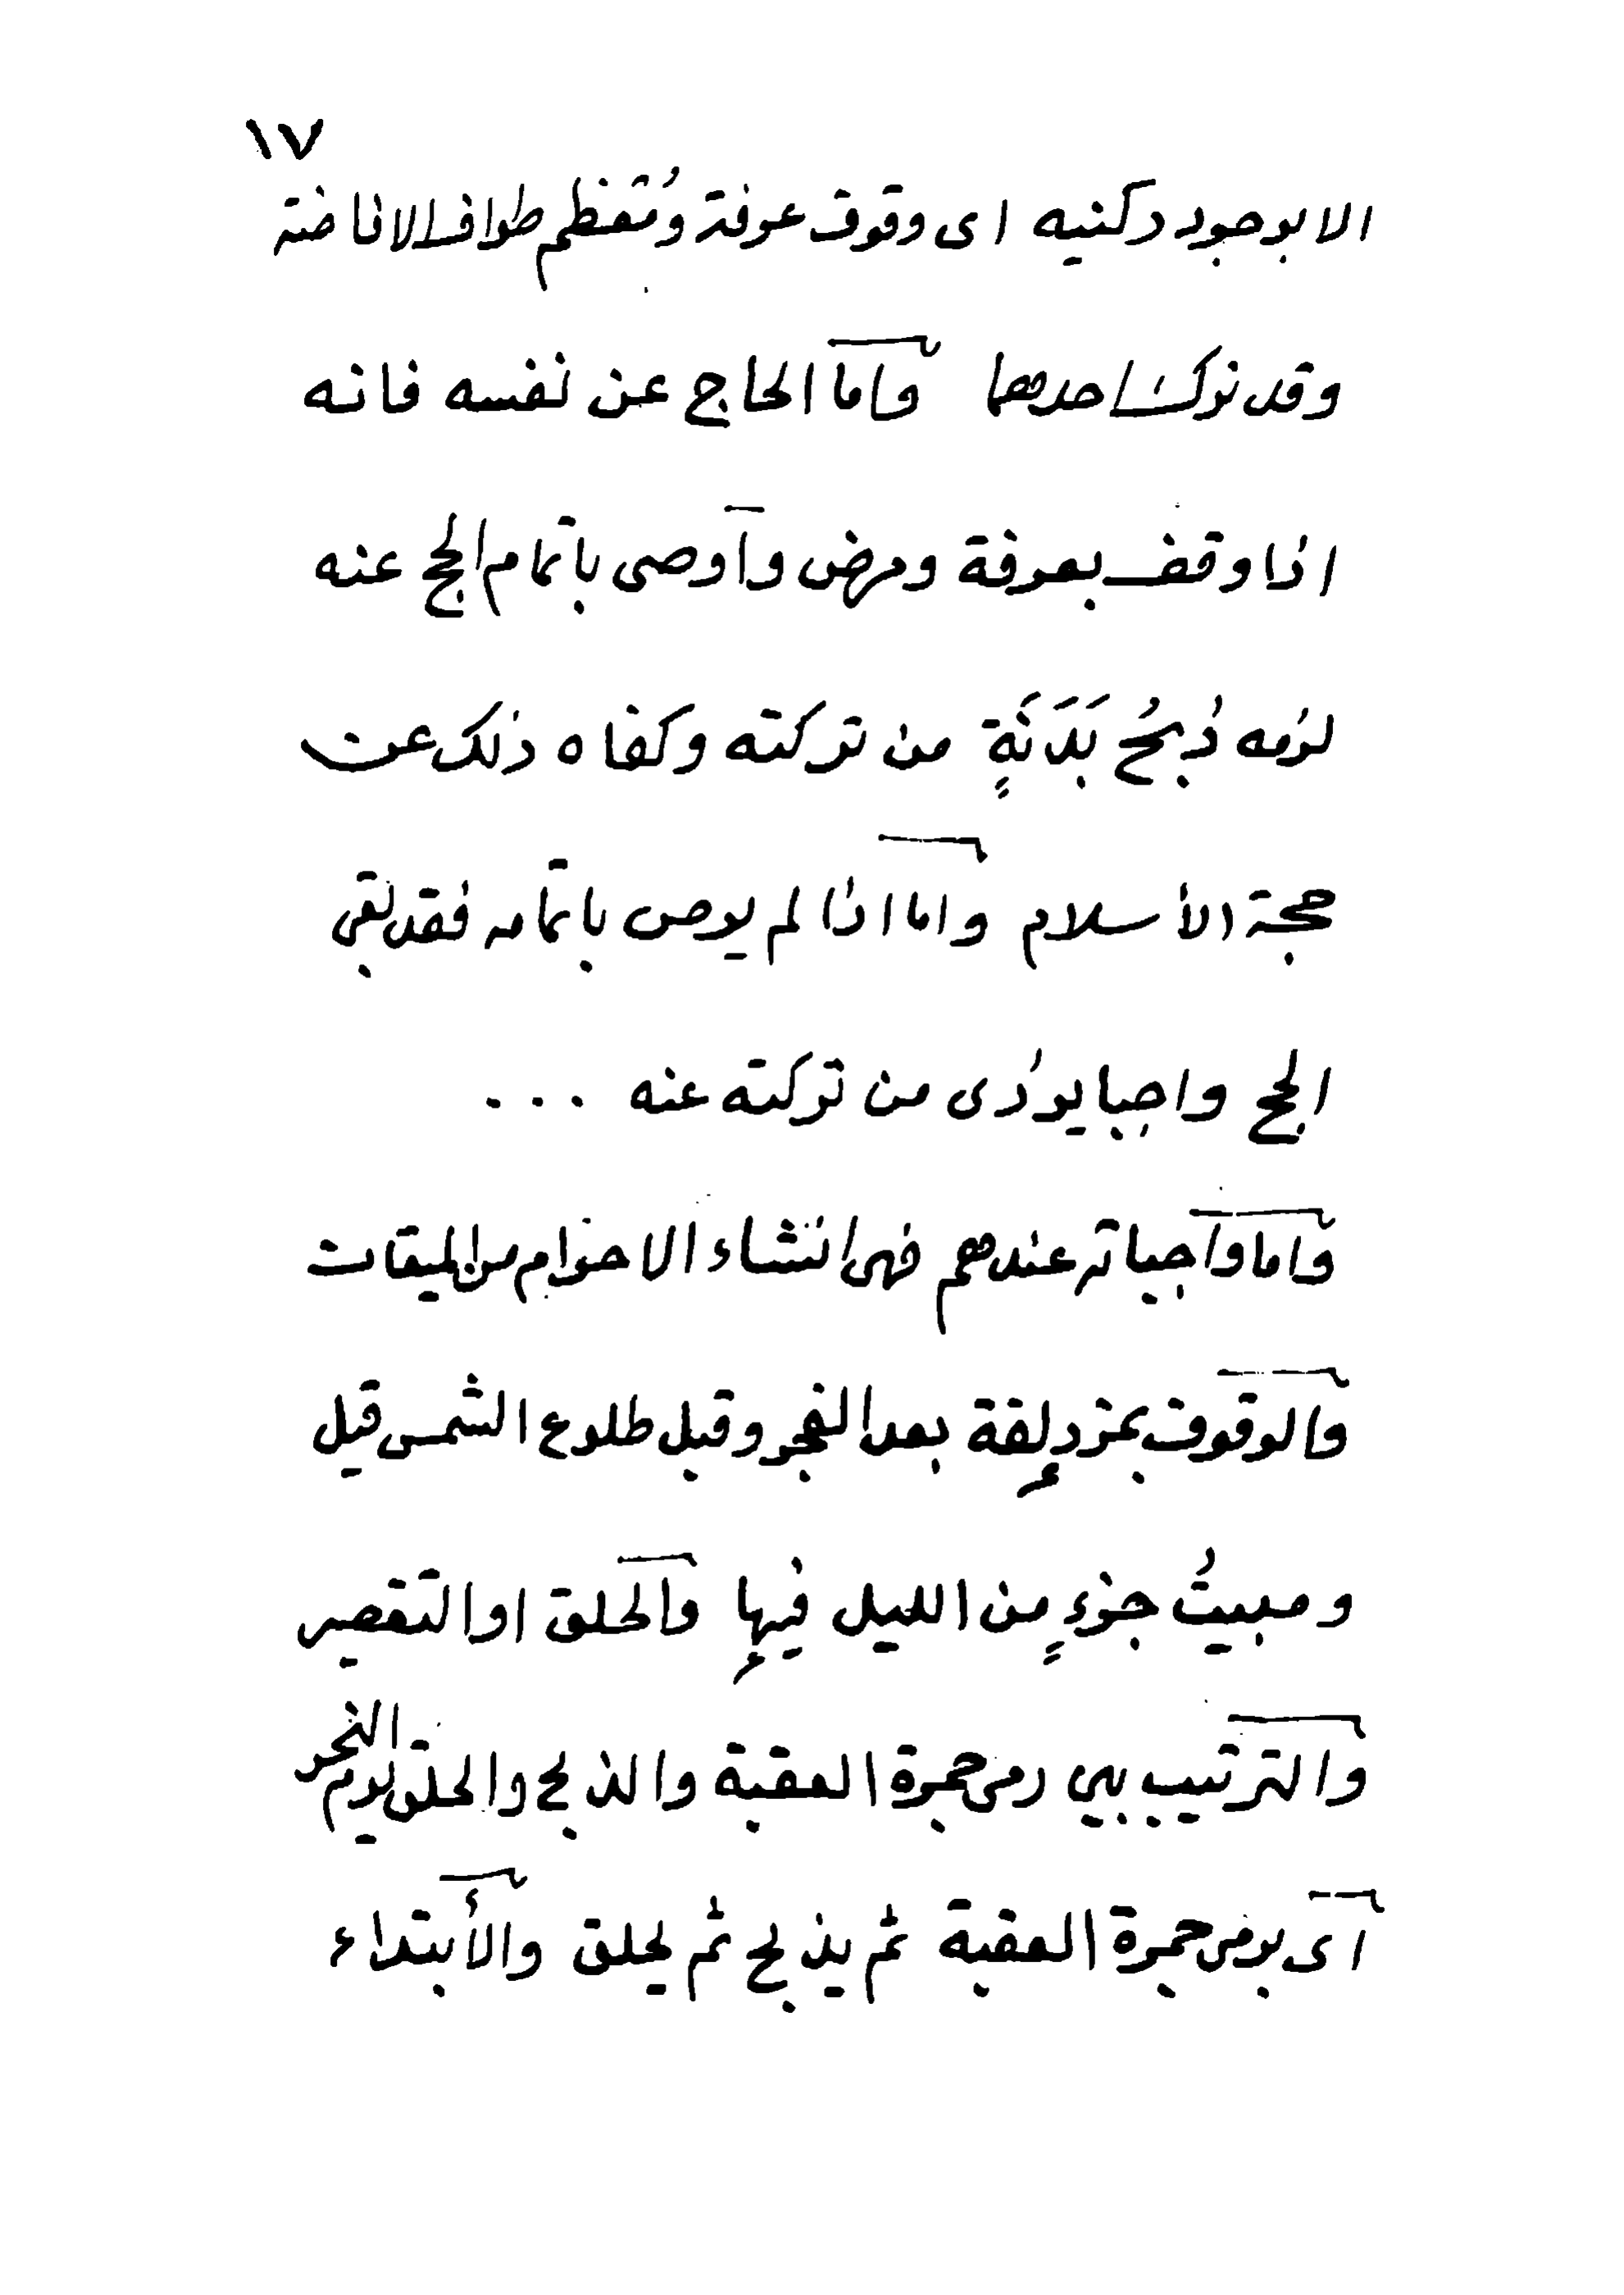 ١٧
الا بوجود ركنيه اى وقوف عرفة ومُعْظم طواف الافاضة
وقد ترك احدهما واما الحاج عن نفسه فانه
اذا وقف بعرفة ومرض واوصى باتمام الحج عنه
لزمه ذُبحُ بَدَنَةٍ من تركته وكفاه ذلك عن
حجة الأسلام واما اذا لم يوص باتمامه فقد بقى
الحج واجبا يودى من تركته عنه ...
واما واجباته عندهم فهى انشاء الاحرام من الميقات
والوقوف بمزدلِفة بعد الفجر وقبل طلوع الشمس قيل
ومبيتُ جزءٍ مِن الليل فيها والحلق او التقصير
والترتيب بين رمى جمرة العقبة والذبح والحلق يوم النحر
اى يرمى جمرة العقبة ثم يذبح ثم يحلق والأبتداء